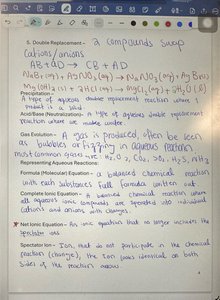 5. Double Replacement - 2 compounds swap
cations/anions
AB + CD → CB + AD
NaBr(aq) + AgNO3(aq) → NaNO3(aq) + AgBr(s)
Mg(OH)2(s) + 2HCl(aq) → MgCl2(aq) + 2H2O(l)
Precipitation -
A type of aqueous double replacement reaction where 1
product is a solid
Acid/Base (Neutralization) - A type of aqueous double replacement
reaction where an
Gas Evolution - A gas is produced, often be seen
as bubbles or fizzing in aqueous reaction
most common gases are: H2, O2, CO2, SO2, H2S, NH3
Representing Aqueous Reactions:
Formula (Molecular) Equation - a balanced chemical reaction
with each substances full formula written out
Complete Ionic Equation - A balanced chemical reaction where
all aqueous ionic compounds are separated into individual
cations and anions with charges.
Net Ionic Equation - An ionic equation that no longer includes the
spectator ions
Spectator Ion - Ions that do not participate in the chemical
reaction (change), the ion looks identical on both
sides of the reaction arrow